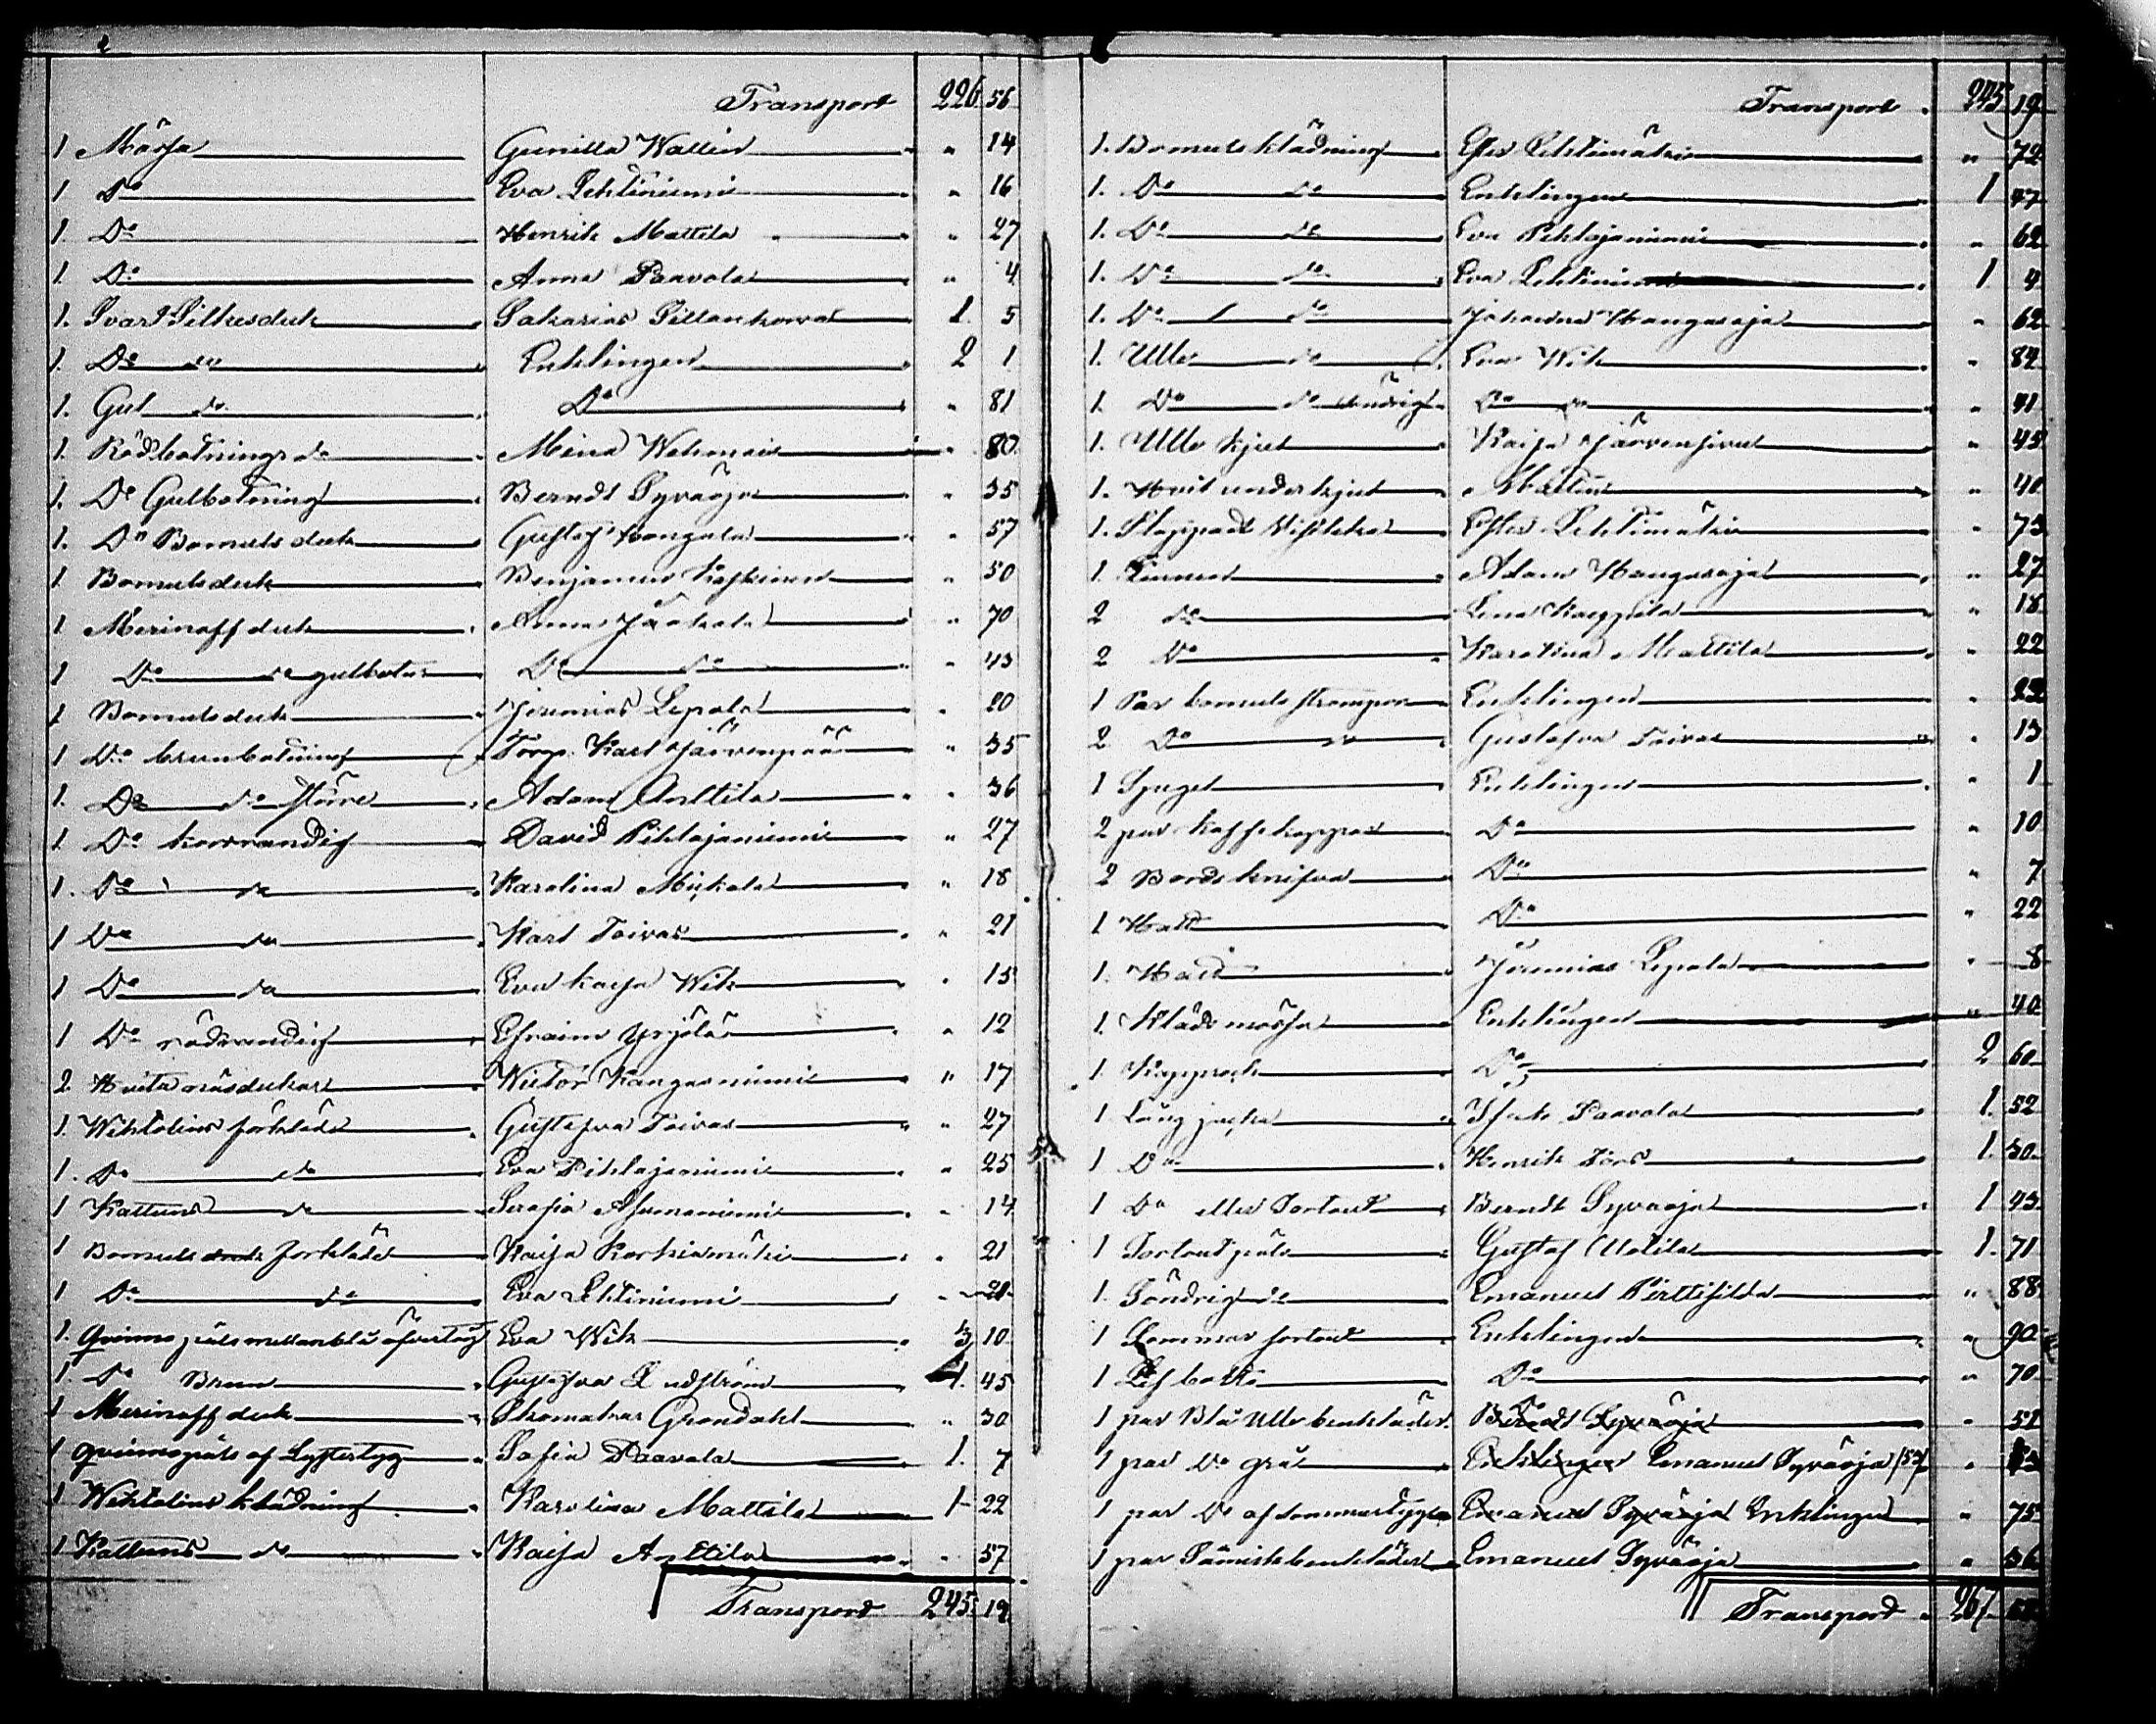 Transport 226. 56
1 Mössa Gunilla Wallin " 14
1 Do Eva Lehtiniemi " 16
1. Do Henrik Mattila " 27
1. Do Anna Paavola " 4
1. Svart Silkesduk Sakarias Sillankorva 1. 5
1. Do do Enklingen 2 1
1. Gul do Do " 81
1. Rödbotnings do Mina " 80
1. Do Gulbotning Berndt Syväoja " 35
1. Do Bomuls duk Gustaf Kangala " 57
1 Bomulsduk Benjamin Koskinen " 50
1 Merinoff duk Anna Jaakola " 70
1 Do do gulbotn Do do " 43
1 Bomulsduk Jeremias Lepola " 20
1 Do brunbotning Torp. Karl Järvenpää " 35
1. Do do större Adam Anttila " 36
1. Do korrandig David Pihlajaniemi " 27
1. Do do Karolina Mickola " 18
1 Do do Karl Toivas " 21
1 Do do Eva Kaisa Wik " 15
1 Do rödrandig Efraim Yrjölä " 12
2. Hvita näsdukar Victor Kangasniemi " 17
1. Wehtolins förkläde Gustafva Toivas " 27
1. Do do Eva Pihlajaniemi " 25
1 Kattuns do Serafia Asumaniemi " 14
1 Bomuls förkläde Kaisa Korkiamäki " 21
1 Do do Eva Lehtiniemi " 21
1. Qvinnopäls mellanblå öfvertåg Eva Wik 3 10
1. Do Brun Gustafva Lindström 1. 45
1 Merinoff duk Skomakar Grondahl " 30
1 qvinnopäls af Lyftertyg Sofia Paavola 1. 7
1 Wehtolins klädning Karolina Mattila 1 22
1 Kattuns do Kaisa Anttila " 57
Transport 245. 19
Transport 245 19
1. Bomuls klädning Efter Lehtimäki " 72
1. Do do Enklingen 1 47
1. Do do Eva Pihlajaniemi " 62
1. Do do Eva Lehtiniemi 1 4
1. Do do Johanna Hangasoja " 62
1. Ulle do Eva Wik " 84
1 Do do söndrig Do do " 41
1. Ulle kjol Kaisa Järvensivu " 45
1. Hvit underkjol Mattin " 40
1. Stoppad Efter Lehtimäki " 73
1. Linned Adam Hangasoja " 27
2 do Lena Kauppila " 18
2 Do Karolina Mattila " 22
1 Par bomuls strumpor Enklingen " 22
2 Do do Gustafva Toivas " 13
1 Spegel Enklingen " 1
2 par kaffekoppar Do " 10
2 Bordsknifvar Do " 7
1 Hatt Do " 22
1. Hatt Jeremias Lepola " 8
1. Klädsmössa Enklingen " 40
1. Kapprock Do 2 60
1 Lång jacka Isak Paavola 1. 52
1 Do Henrik Fors 1. 30
1 Do eller Sortout Berndt Syväoja 1 43
1 Sortout päls Gustaf Uotila 1. 71
1. Söndrig do Emanuel Pirttisilta " 88
1 Sommar sortout Enklingen " 90
1 Do " 70
1 par Blå ulle benkläder Berndt Syväoja Do " 51
1 par Do grå Enklingen Emanuel Syväoja /53/ "
1 par Do af sommartyg Emanuel Syväoja Enklingen " 75
1 par Sämisk benkläder Emanuel Syväoja " 36
Transport 267